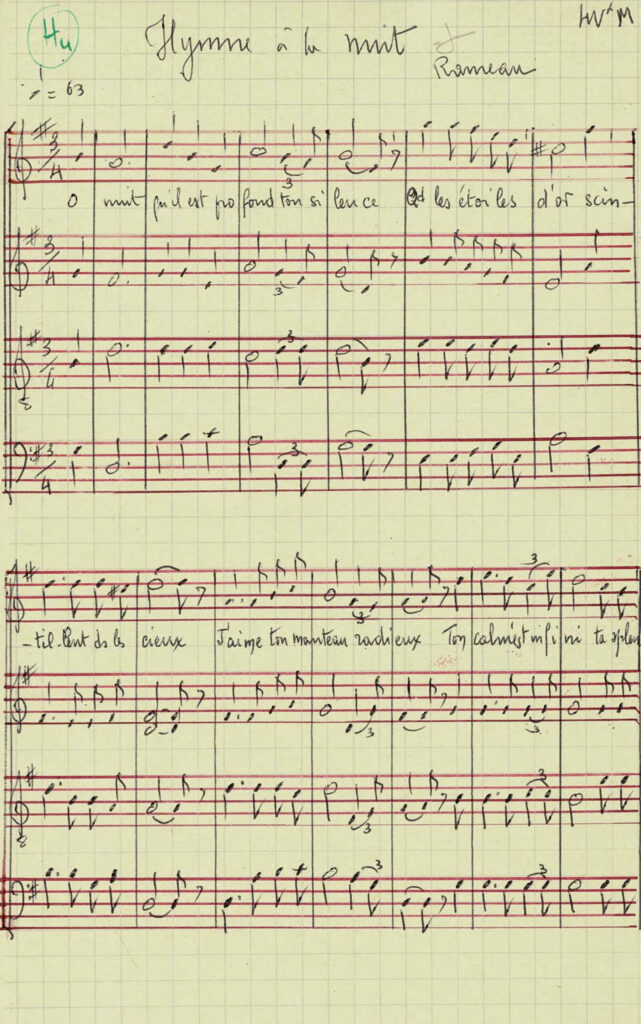 Hu
Hymne à la nuit
Rameau
4V
M
= 63
3
4
O nuit qu'il est pro fond ton si lence Qd les étoiles d'or scin-
3
3
4
3
3
4
3
8
3
4
3
-til-lent ds les cieux J'aime ton manteau radieux Ton calme est infi ni ta splen
3
3
3
3
3
8
3
3
3